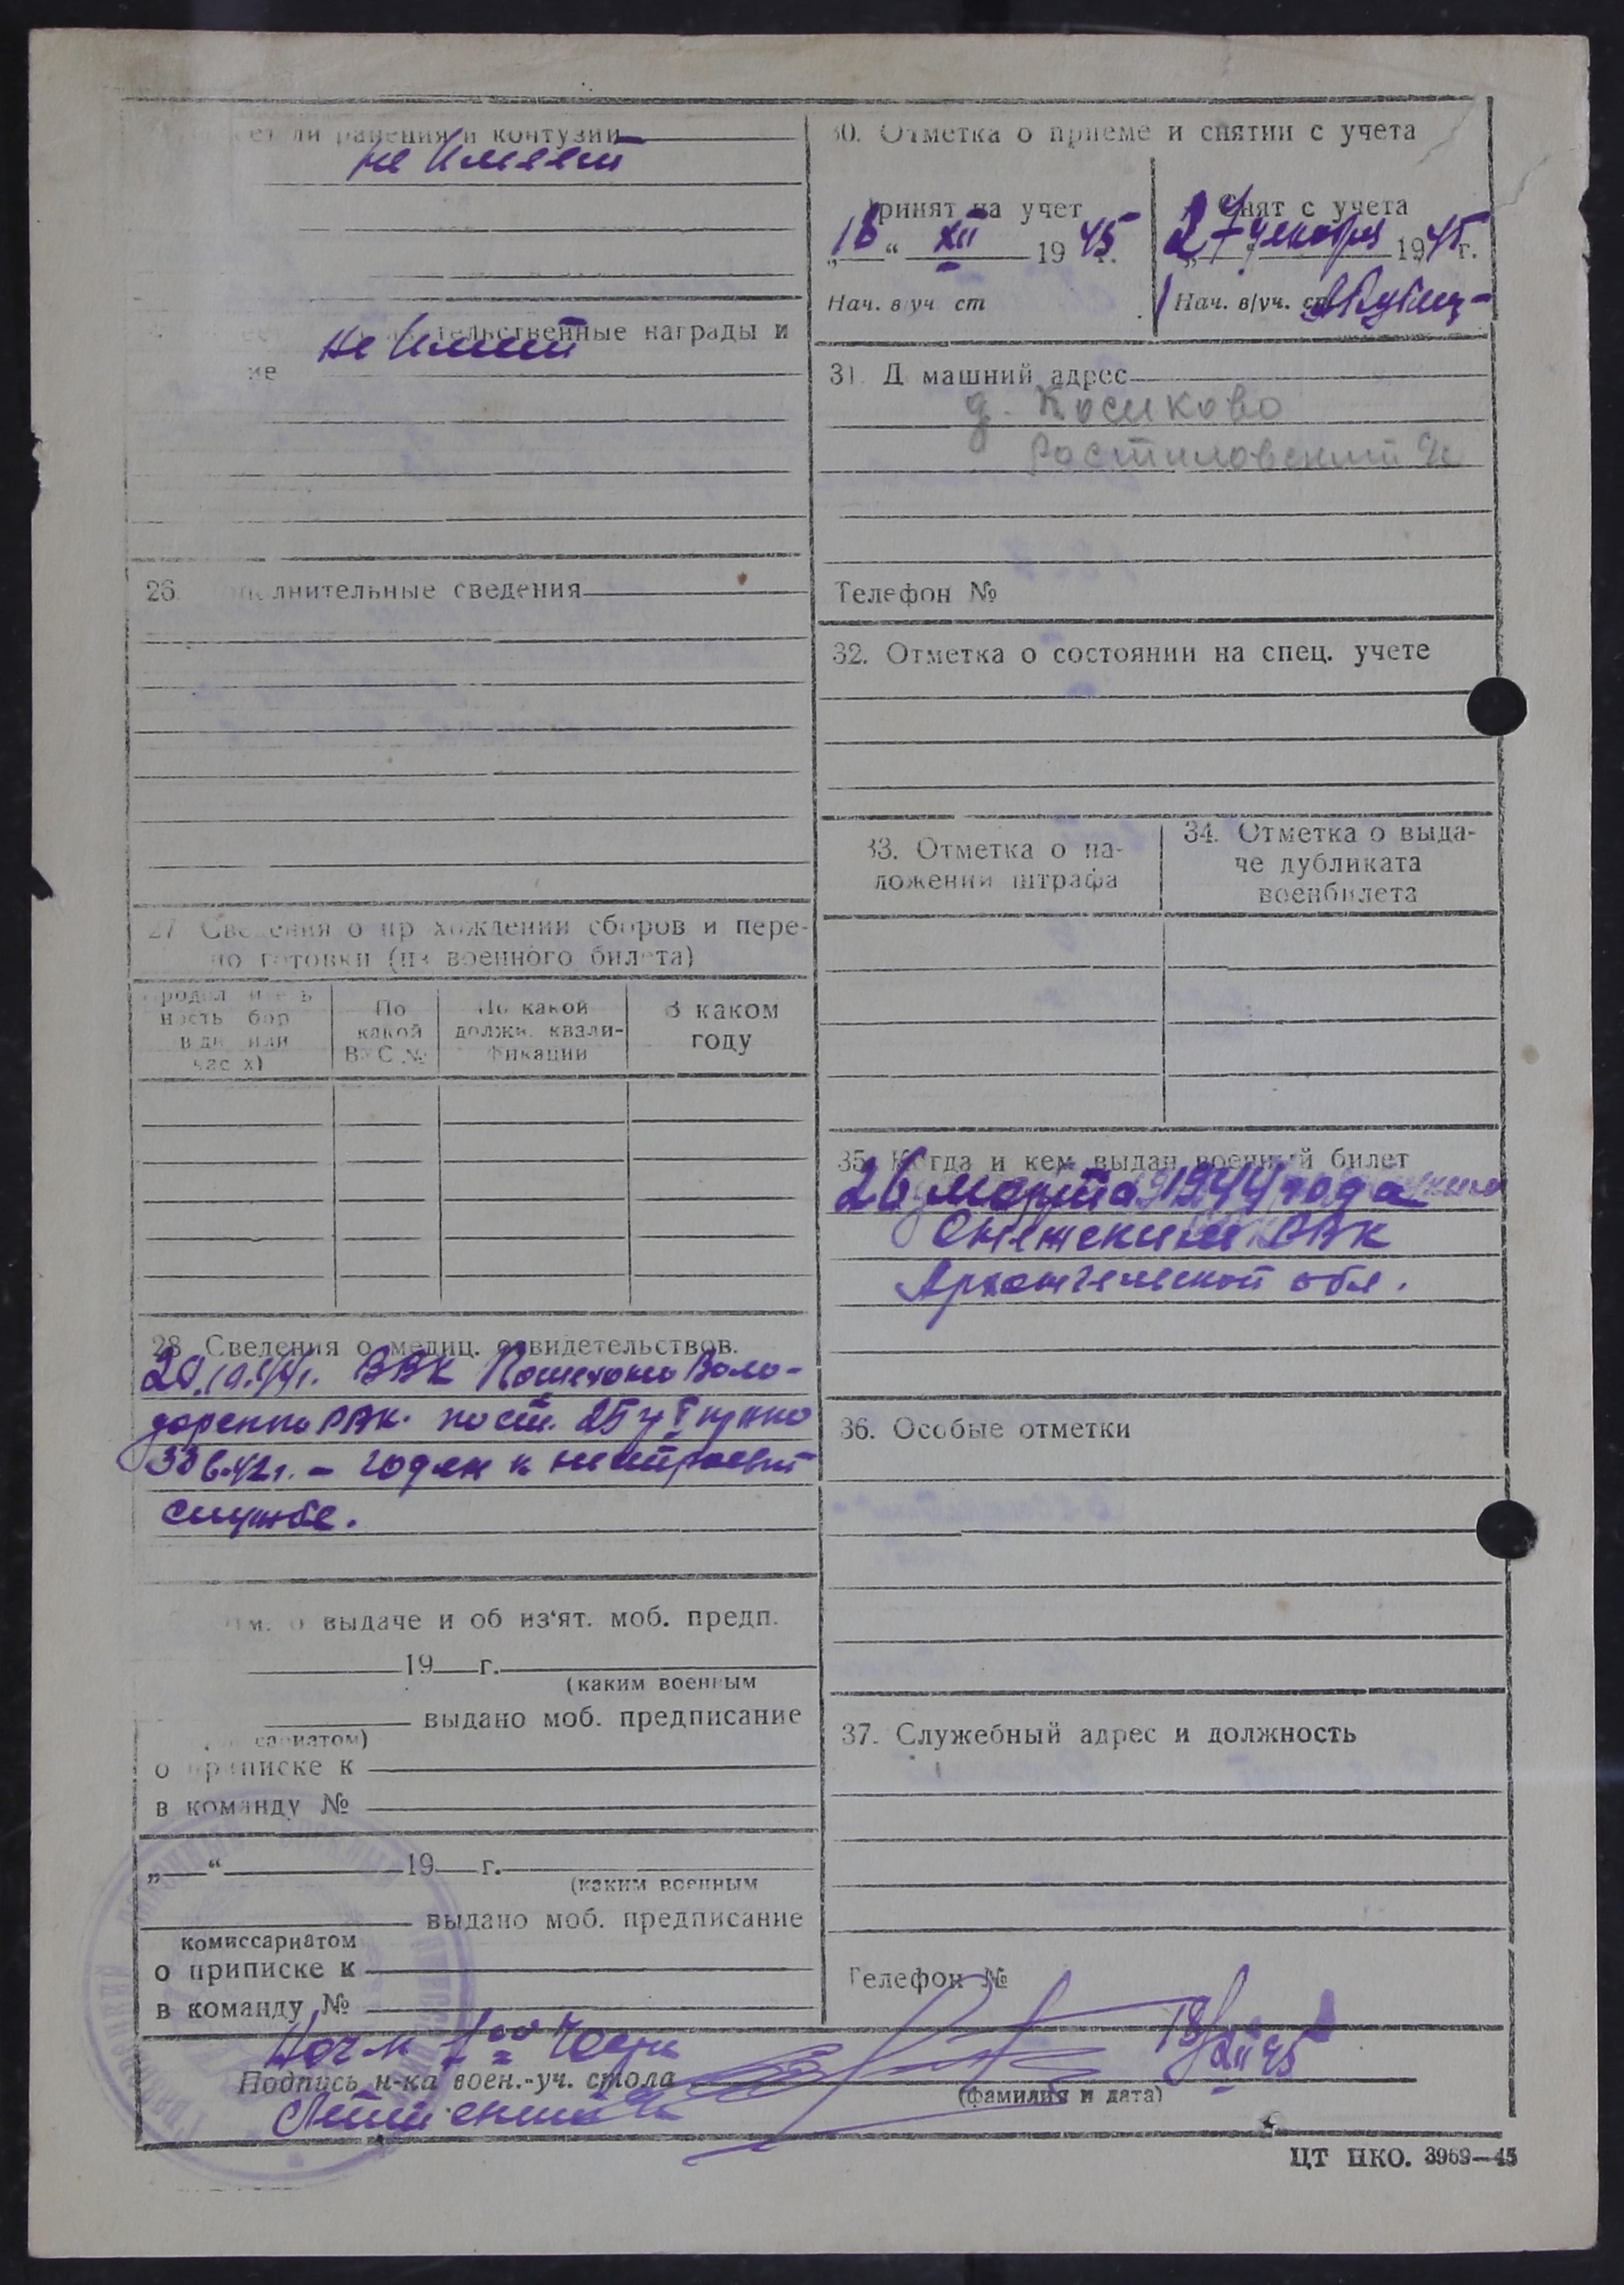 ли ранения и контузии
не имеет
тельственные награды и
не имеет
ие
26. полнительные сведения
27 Сведения о пр хождении сборов и пере-
по готовки (из военного билета)
ность бор
в дн или
час х)
По
какой
ВУС №
По какой
должн. квали-
фикации
В каком
году
28 Сведения о медиц. освидетельствов.
ВВК Пошехоно Воло-
дарского РВК. пост. 25
336.42г. – годен к нестроевой
службе.
о выдаче и об из'ят. моб. предп.
19 г.
(каким военным
выдано моб. предписание
сариатом)
о приписке к
в команду №
„ “ 19 г.
(каким военным
выдано моб. предписание
комиссариатом
о приписке к
в команду №
30. Отметка о приеме и снятии с учета
Принят на учет
18 “ XII 1945 г.
Нач. в/уч ст
Снят с учета
27 декабря 1945 г.
Нач. в/уч. ст
31. Д машний адрес
д. Косиково
Ростиловский
Телефон №
32. Отметка о состоянии на спец. учете
33. Отметка о на-
ложении штрафа
34. Отметка о выда-
че дубликата
военбилета
35. Когда и кем выдан военный билет
26 марта 1944 года
РВК
Архангельской обл.
36. Особые отметки
37. Служебный адрес и должность
Телефон №
Нач-к части
Подпись н-ка воен.-уч. стола
18/XII 45
(фамилия и дата)
ЦТ НКО. 3969—45